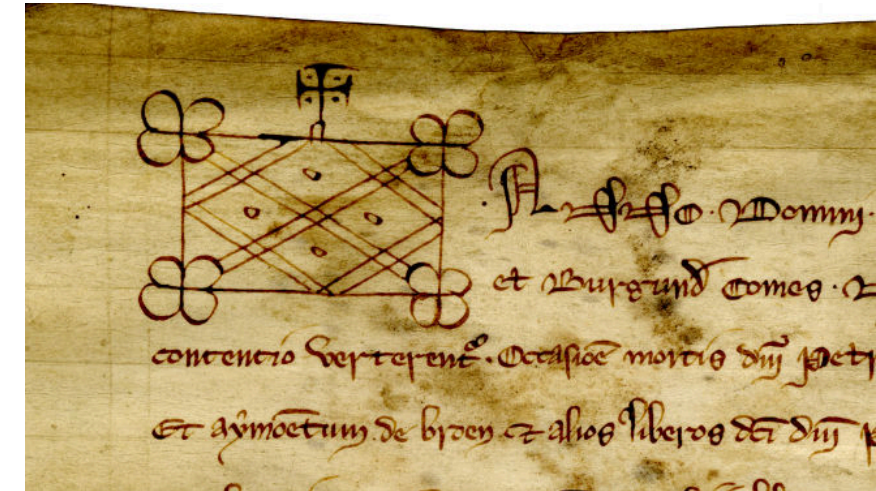 Anno · Domini ·
et Burgund̄ Comes ·
contentio verterent᷑ · Occasiōe mortis dn̄i Petr
Et aẏmōetum de broen et alios liberos dc̄i dn̄i